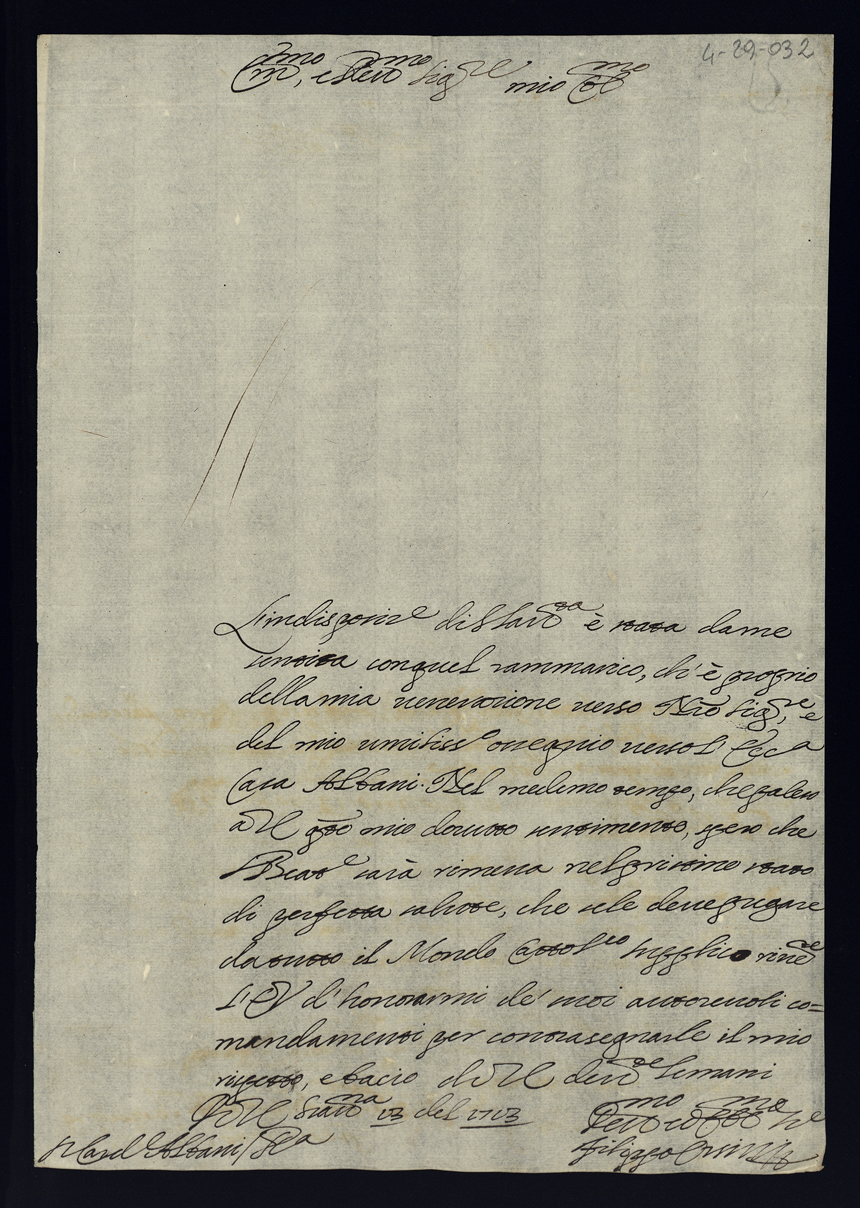 4-29-032
Em̃mo, e Reṽmo Sigre mio Õmo
L'indisposize di S. Santtà è stata da me
sentita con quel rammarico, ch' è proprio
della mia venerazione verso Nrõ Sigre, e
del mio umilisso ossequio verso l' Ecca
Casa Albani. Nel medemo tempo, che paleso
a V. E. qsto mio dovuto sentimento, spero che
S. Beatne sarà rimessa nel pristino stato
di perfetta salute, che se le deve pregare
da tutto il Mondo Cattolco supplico
L' E. V. d' honorarmi de' suoi autorevoli co=
mandamenti per contrasegnarle il mio
rispetto, e bacio di V. E. le mani
del 1713
Filippo Orsini
Sr Card. Albani /